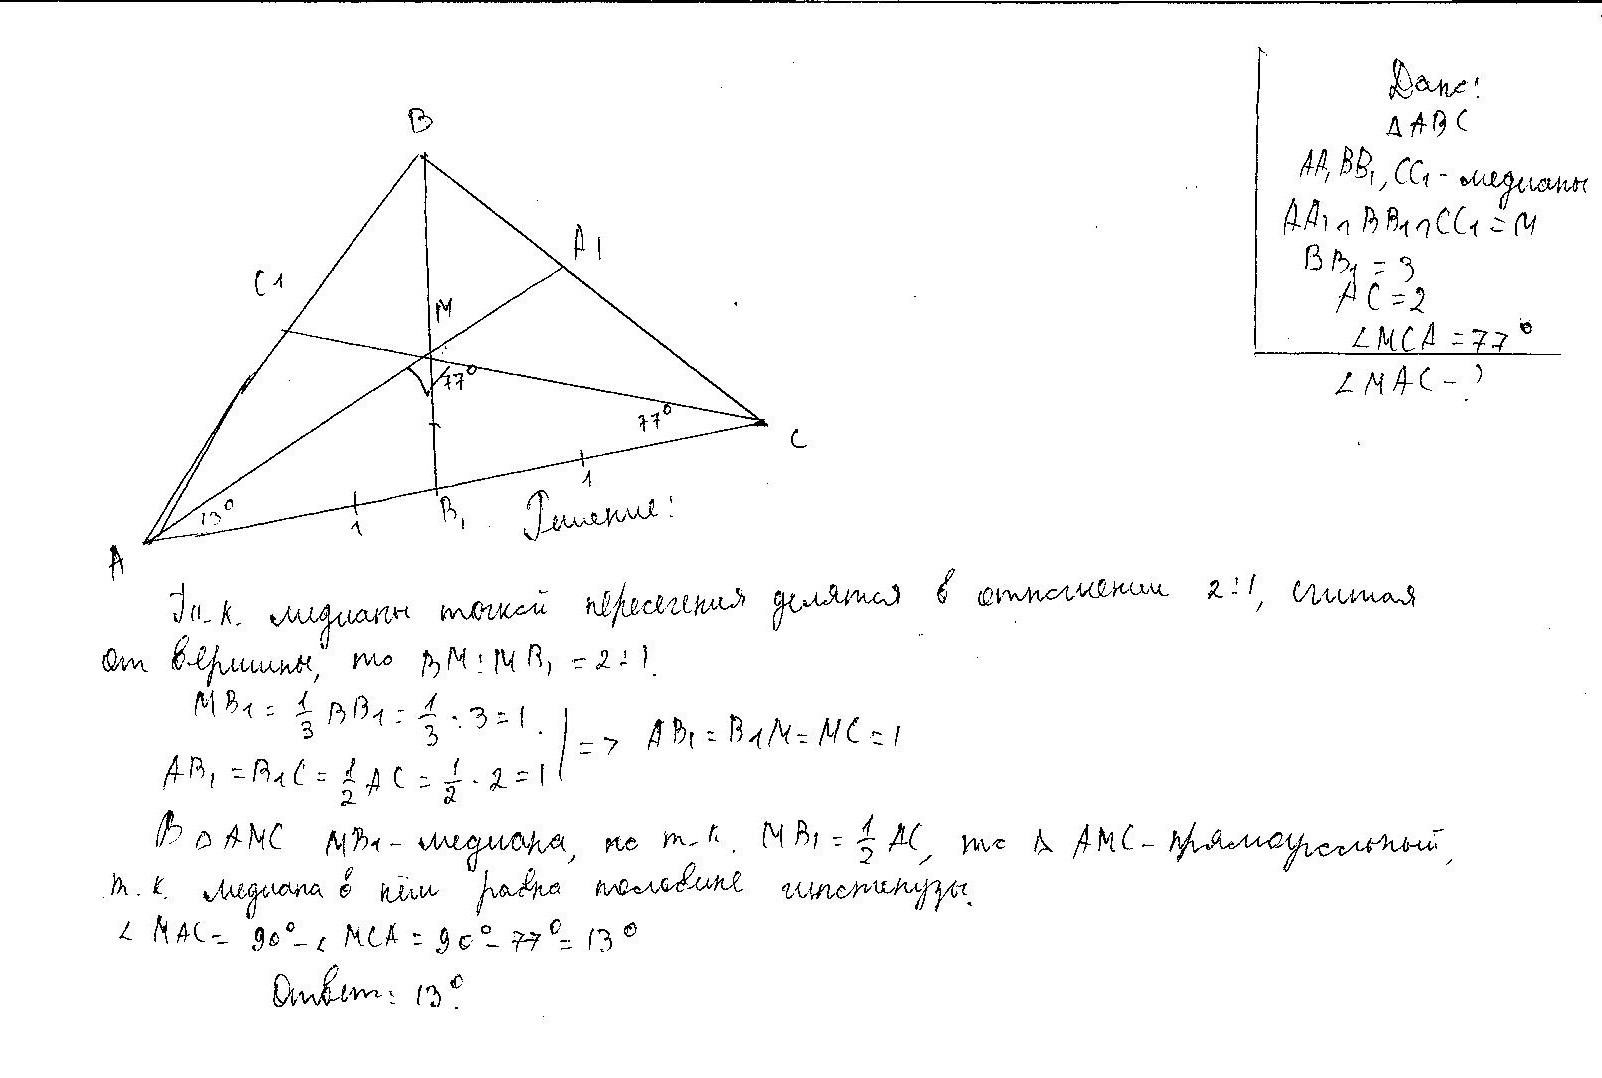 B
A1
C1
M
77°
77°
13°
1
B₁
1
A
C
Дано:
△ABC
AA₁BB₁, CC1 - медианы
AA1 ∩ BB1 ∩ CC1 = M
BB1 = 3
AC = 2
∠MCA = 77°
∠MAC - ?
Решение:
Т.к. медианы точкой пересечения делятся в отношении 2:1, считая
от вершины, то BM : MB₁ = 2:1.
MB1 = 1/3 BB1 = 1/3 · 3 = 1.
AB₁ = B1C = 1/2 AC = 1/2 · 2 = 1 | => AB₁ = B1M = MC = 1
В △AMC MB1 - медиана, но т.к. MB₁ = 1/2 AC, то △ AMC - прямоугольный,
т.к. медиана в нём равна половине гипотенузы.
∠ MAC = 90° - ∠ MCA = 90° - 77° = 13°
Ответ: 13°.